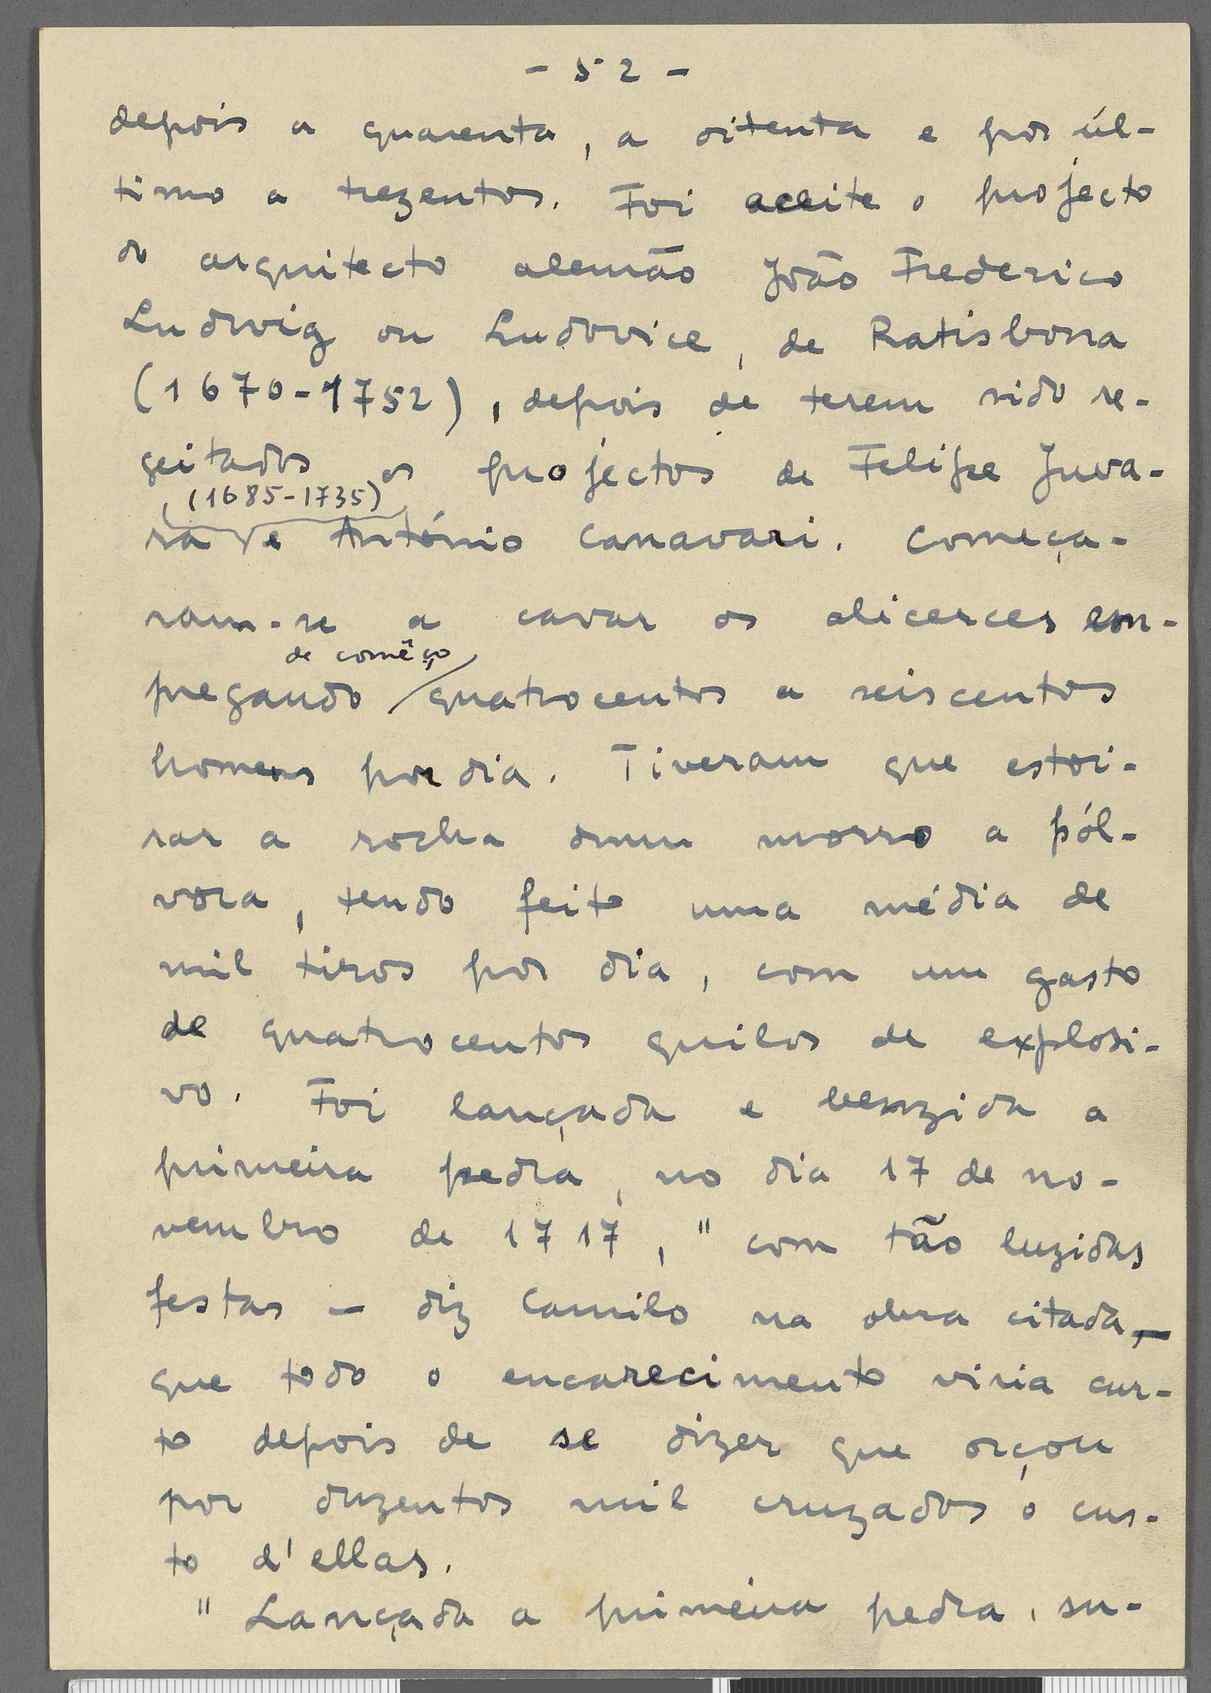 - 52 -
depois a quarenta, a oitenta e por úl-
timo a trezentos. Foi aceite o projecto
do arquitecto alemão João Frederico
Ludwig ou Ludovice, de Ratisbona
(1670-1752), depois de terem sido re-
geitados os projectos de Felipe Juva-
(1685-1735)
ra e António Canavari. Começa-
ram-se a cavar os alicerces em-
de comêço
pregando quatrocentos a seiscentos
homens por dia. Tiveram que estoi-
rar a rocha dum morro a pól-
vora, tendo feito uma média de
mil tiros por dia, com um gasto
de quatrocentos quilos de explosi-
vo. Foi lançada e benzida a
primeira pedra, no dia 17 de no-
vembro de 1717, "com tão luzidas
festas — diz Camilo na obra citada —
que todo o encarecimento viria cur-
to depois de se dizer que orçou
por duzentos mil cruzados o cus-
to d'ellas.
"Lançada a primeira pedra, su-